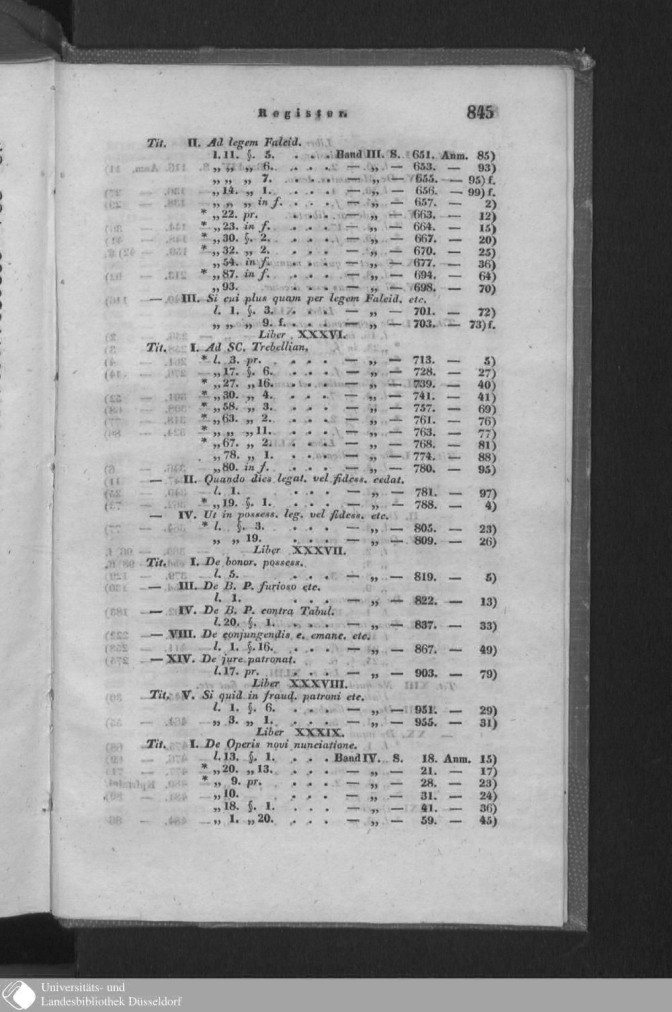 Register.
845
Tit. II. Ad legem Falcid.
l. 11. §. 5. . . . Band III. S. 651. Anm. 85)
„ „ „ 6. . . . — „ — 653. — 93)
„ „ „ 7. . . . — „ — 655. — 95) f.
„ 14. „ 1. . . . — „ — 656. — 99) f.
„ „ „ in f. . . . — „ — 657. — 2)
* „ 22. pr. . . . — „ — 663. — 12)
* „ 23. in f. . . . — „ — 664. — 15)
* „ 30. §. 2. . . . — „ — 667. — 20)
* „ 32. „ 2. . . . — „ — 670. — 25)
„ 54. in f. . . . — „ — 677. — 36)
* „ 87. in f. . . . — „ — 694. — 64)
„ 93. . . . — „ — 698. — 70)
— III. Si cui plus quam per legem Falcid. etc.
l. 1. §. 3. . . . — „ — 701. — 72)
„ „ „ 9. f. . . . — „ — 703. — 73) f.
Liber XXXVI.
Tit. I. Ad SC. Trebellian.
* l. 3. pr. . . . — „ — 713. — 5)
* „ 17. §. 6. . . . — „ — 728. — 27)
* „ 27. „ 16. . . . — „ — 739. — 40)
* „ 30. „ 4. . . . — „ — 741. — 41)
* „ 58. „ 3. . . . — „ — 757. — 69)
* „ 63. „ 2. . . . — „ — 761. — 76)
* „ „ „ 11. . . . — „ — 763. — 77)
* „ 67. „ 2. . . . — „ — 768. — 81)
„ 78. „ 1. . . . — „ — 774. — 88)
„ 80. in f. . . . — „ — 780. — 95)
— II. Quando dies legat. vel fidess. cedat.
l. 1. . . . — „ — 781. — 97)
* „ 19. §. 1. . . . — „ — 788. — 4)
— IV. Ut in possess. leg. vel fidess. etc.
* l. §. 3. . . . — „ — 805. — 23)
„ „ 19. . . . — „ — 809. — 26)
Liber XXXVII.
Tit. I. De bonor. possess.
l. 5. . . . — „ — 819. — 5)
— III. De B. P. furioso etc.
l. 1. . . . — „ — 822. — 13)
— IV. De B. P. contra Tabul.
l. 20. §. 1. . . . — „ — 837. — 33)
— VIII. De conjungendis c. emanc. etc.
l. 1. §. 16. . . . — „ — 867. — 49)
— XIV. De jure patronat.
l. 17. pr. . . . — „ — 903. — 79)
Liber XXXVIII.
Tit. V. Si quid in fraud. patroni etc.
l. 1. §. 6. . . . — „ — 951. — 29)
„ 3. „ 1. . . . — „ — 955. — 31)
Liber XXXIX.
Tit. I. De Operis novi nunciatione.
l. 13. §. 1. . . . Band IV. S. 18. Anm. 15)
* „ 20. „ 13. . . . — „ — 21. — 17)
* „ 9. pr. . . . — „ — 28. — 23)
„ 10. . . . — „ — 31. — 24)
„ 18. §. 1. . . . — „ — 41. — 36)
„ 1. „ 20. . . . — „ — 59. — 45)
Universitäts- und
Landesbibliothek Düsseldorf